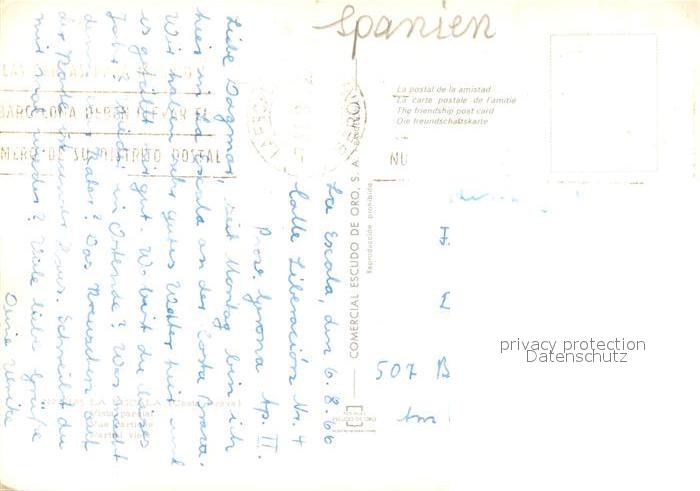 Spanien
La postal de la amistad
La carte postale de l'amitié
The friendship post card
Die freundschaftskarte
BARCELONA DEBEN LLEVAR EL
NUMERO DE SU DISTRITO POSTAL
NU
COMERCIAL ESCUDO DE ORO, S. A.
Reproducción prohibida
La Escala, den 6. 8. 66
Calle Liberación Nr. 4
Prov. Gerona Ap. II.
Liebe Dagmar, seit Montag bin ich
hier in La Escala an der Costa Brava.
Wir haben sehr gutes Wetter hier und
es gefällt mir gut. Wo bist du dieses
Jahr? Wieder in Ostende? Was macht
denn Vater? Das
der Schreibst du
mir mal wieder? Viele liebe Grüße
Deine Ulrike
LA ESCALA (Costa Brava)
Vista parcial
Vue partielle
Partial view
507 B
Am
privacy protection
Datenschutz